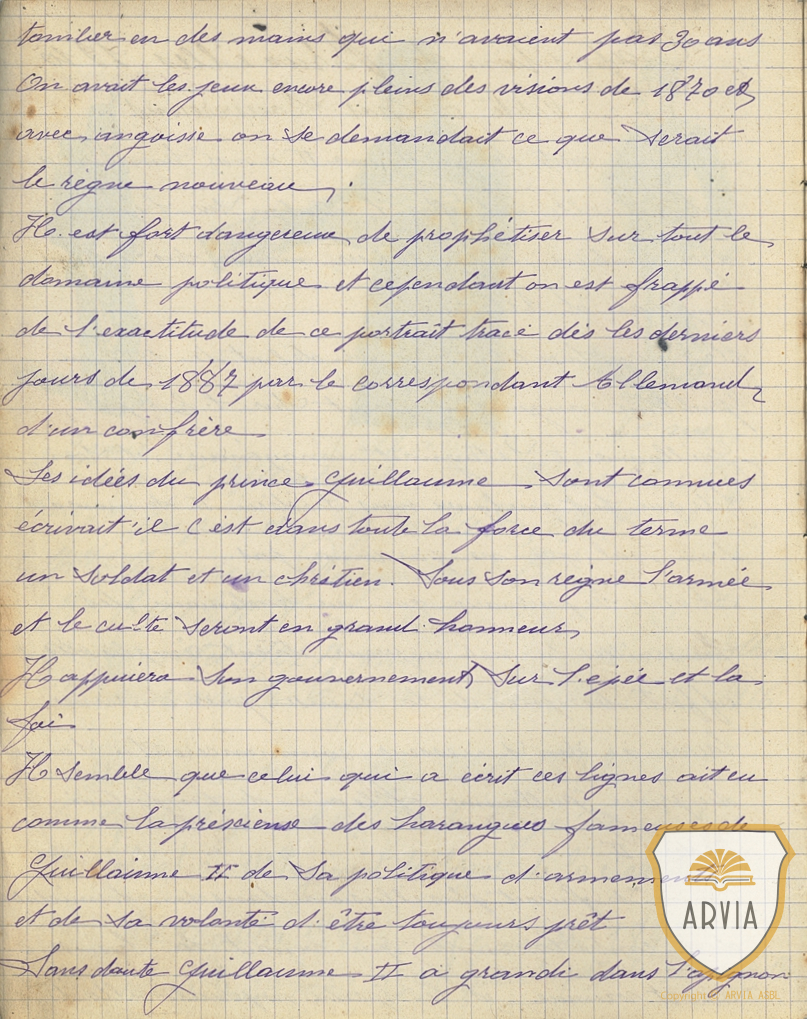 tomber en des mains qui n'avaient pas 30 ans
On avait les yeux encore pleins des visions de 1870 et
avec angoisse on se demandait ce que serait
le règne nouveau,
Il est fort dangereux de prophétiser sur tout le
domaine politique et cependant on est frappé
de l'exactitude de ce portrait tracé dès les derniers
jours de 1887 par le correspondant Allemand
d'un confrère
Les idées du prince Guillaume sont connues
écrivait'il c'est dans toute la force du terme
un soldat et un chrétien. Sous son règne l'armée
et le culte seront en grand honneur,
Il appuiera son gouvernement sur l'epée et la
foi
Il semble que celui qui a écrit ces lignes ait eu
comme la préscience des harangues fameuses de
Guillaume II de sa politique d'armement
et de sa volonté d'être toujours prêt
Sans doute Guillaume II a grandi dans
ARVIA
Copyright © ARVIA ASBL